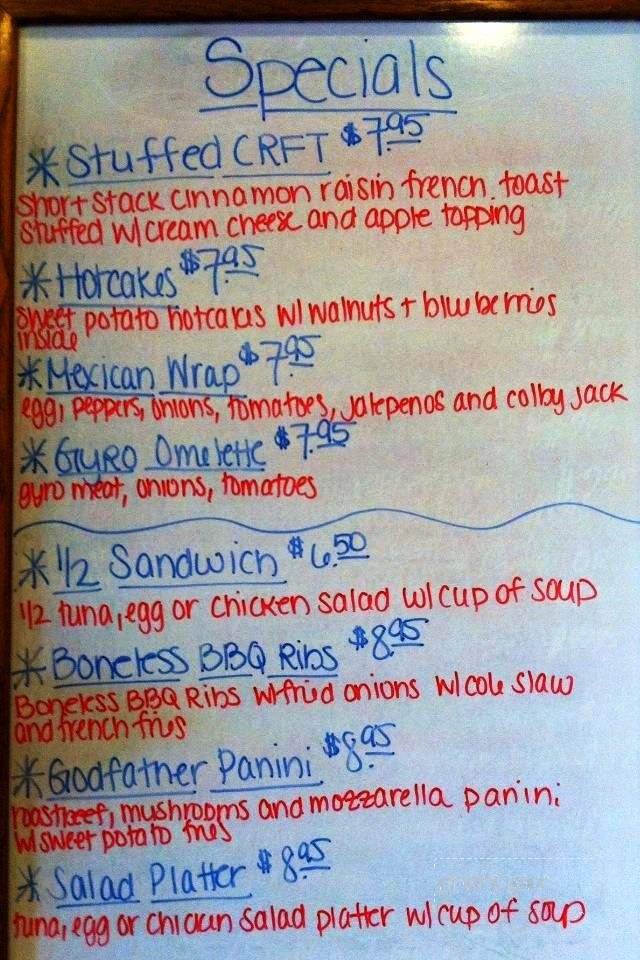 Specials
* Stuffed CRFT $7.95
short stack cinnamon raisin french toast
stuffed w/cream cheese and apple topping
* Hotcakes $7.95
sweet potato hotcakes w/ walnuts + blueberries
inside
* Mexican Wrap $7.95
egg, peppers, onions, tomatoes, jalepenos and colby jack
* Gyro Omelette $7.95
gyro meat, onions, tomatoes
* 1/2 Sandwich $6.50
1/2 tuna, egg or chicken salad w/ cup of soup
* Boneless BBQ Ribs $8.95
Boneless BBQ Ribs w/fried onions w/ cole slaw
and french fries
* Godfather Panini $8.95
roastbeef, mushrooms and mozzarella panini
w/ sweet potato fries
* Salad Platter $8.95
tuna, egg or chicken salad platter w/ cup of soup